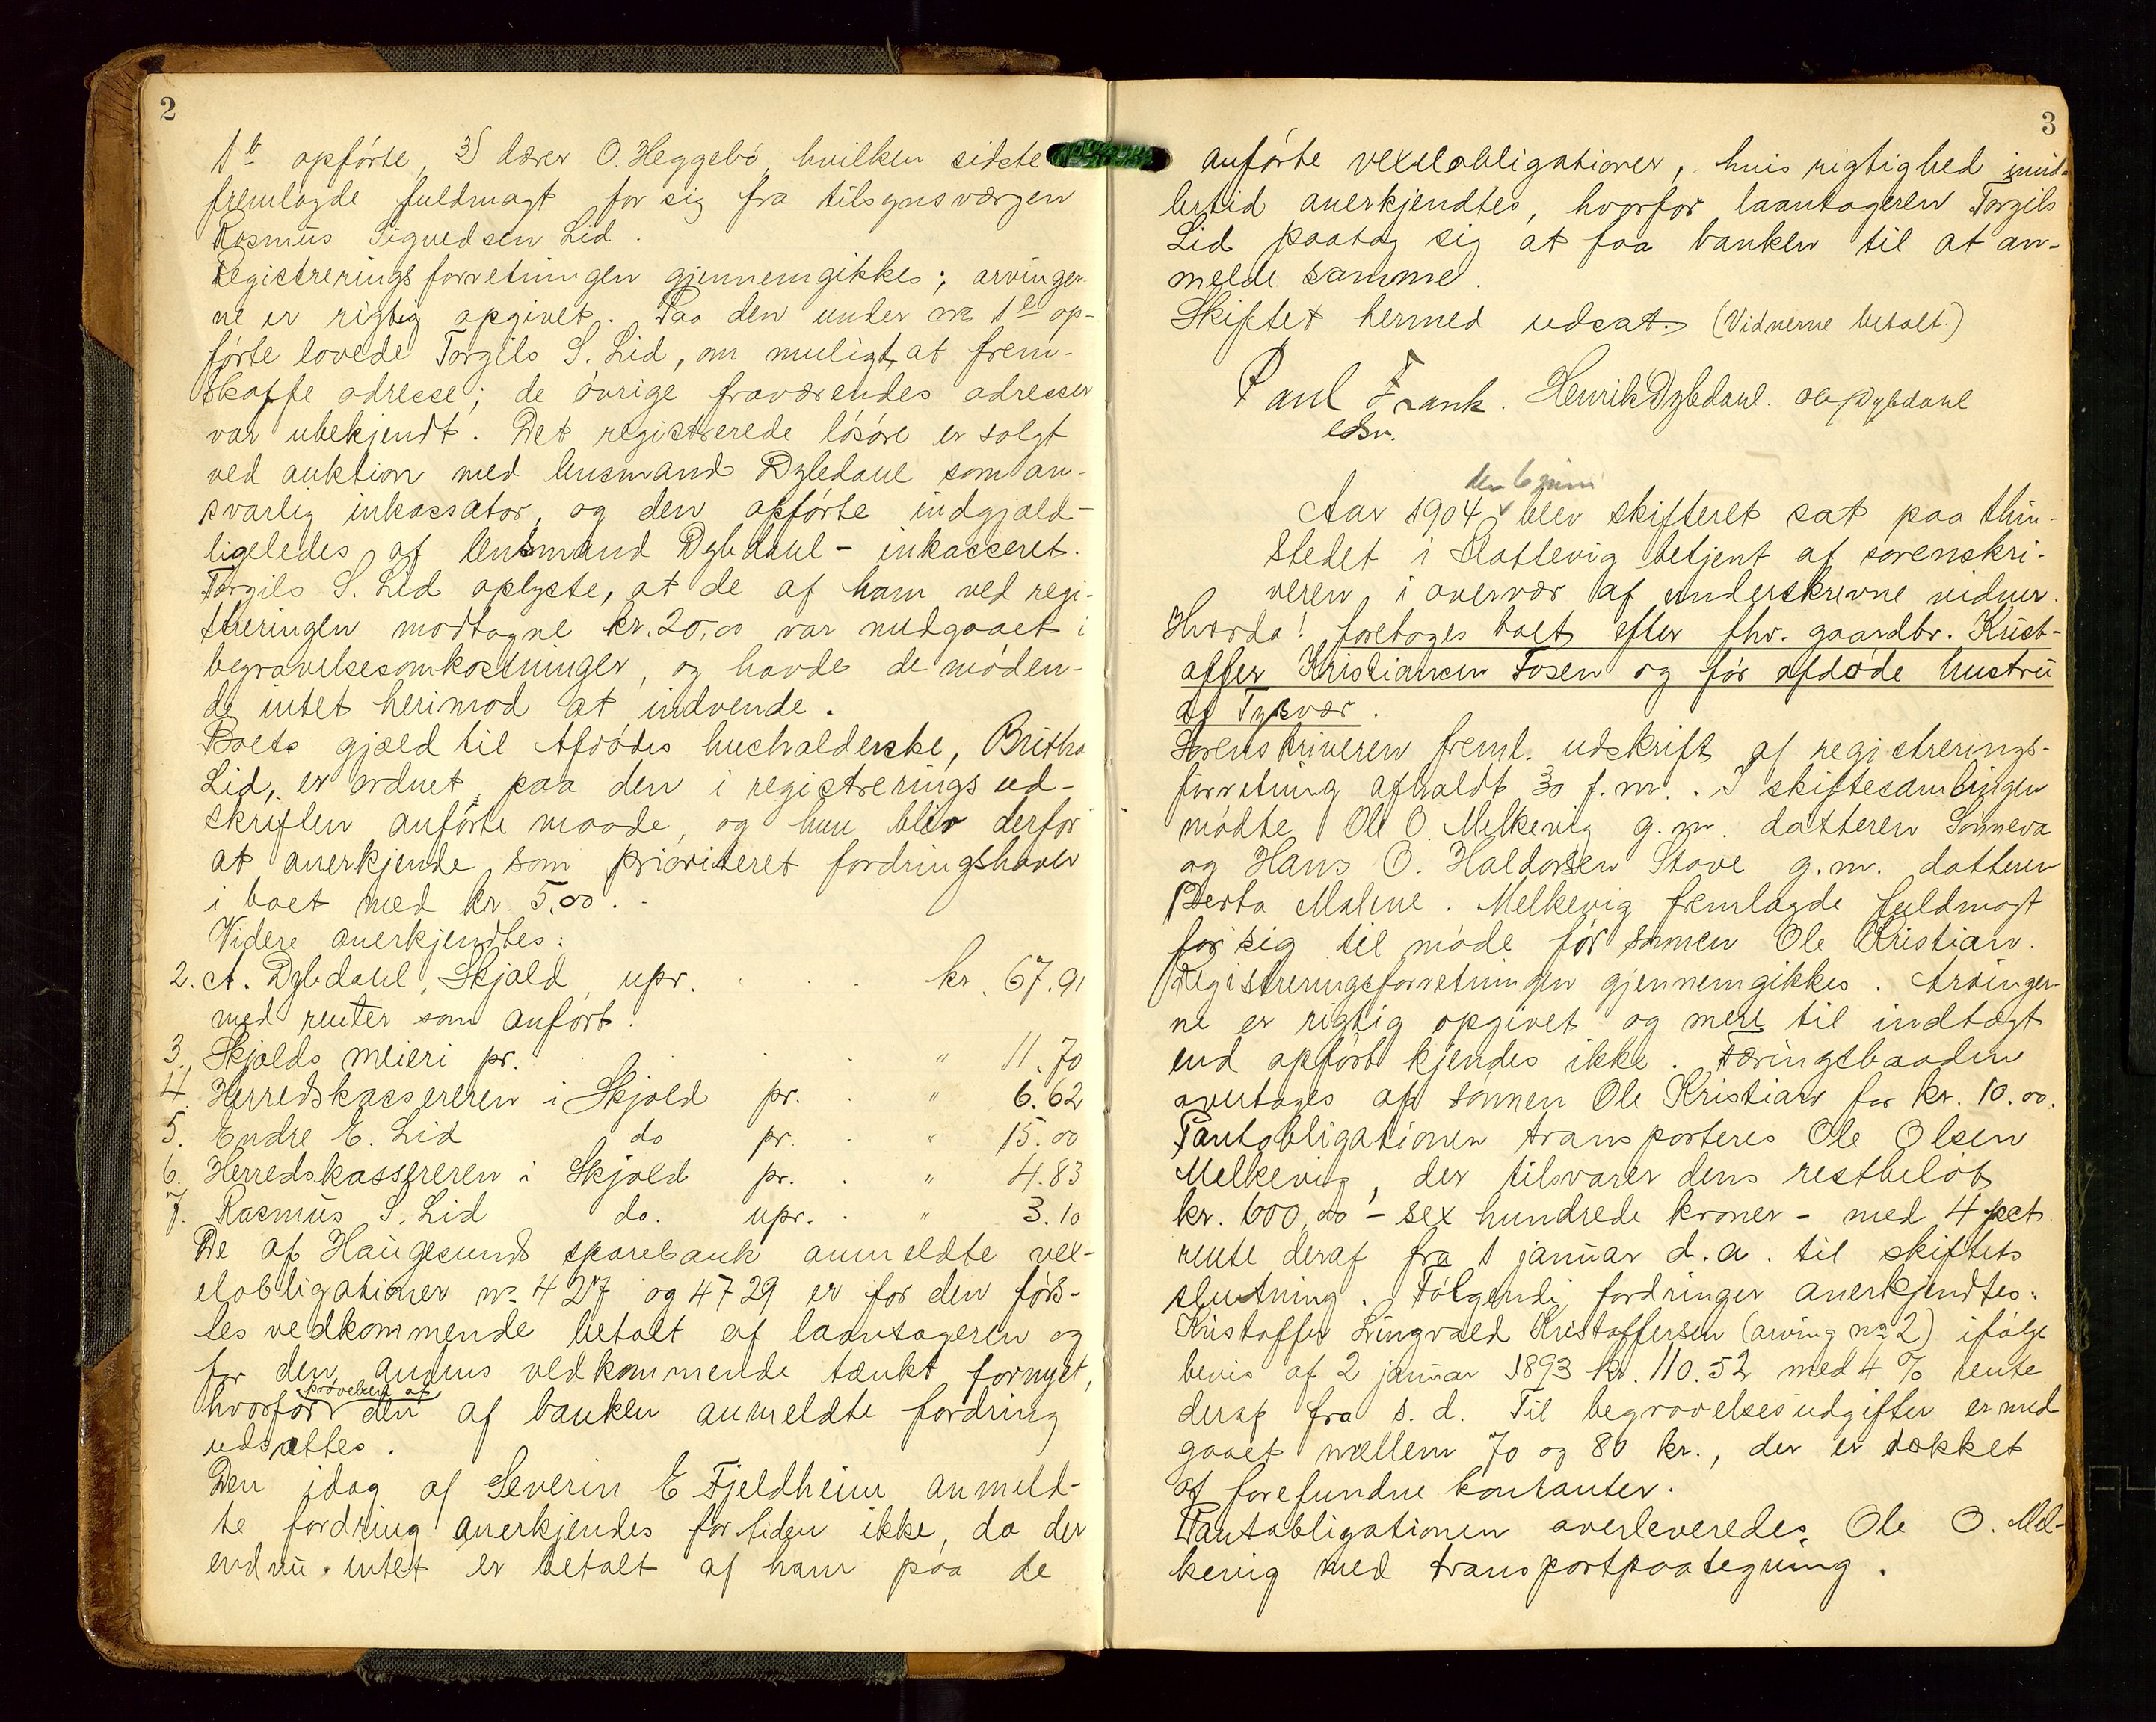 2
1b opførte, 3) lærer O. Heggebø, hvilken sidste
fremlagde fuldmagt for sig fra tilsynsværgen
Rasmus Sigvedsen Lid.
Registreringsforretningen gjennemgikkes; arvinger-
ne er rigtig opgivet. Paa den under no 1 op-
førte lovede Torgils S. Lid, om muligt, at frem-
skaffe adresse; de øvrige fraværendes adresser
var ubekjendt. Det registrerede løsøre er solgt
ved auktion med lensmand Dybdahl som an-
svarlig inkassator, og den opførte indgjæld -
ligeledes af lensmand Dybdahl - inkasseret.
Torgils S. Lid oplyste, at de af ham ved regi-
streringen modtagne kr. 20,00 var medgaaet i
begravelsesomkostninger, og havde de møden-
de intet herimod at indvende.
Boets gjæld til Afdødes husholderske, Britha
Lid, er ordnet paa den i registreringsud-
skriften anførte maade, og hun blir derfor
at anerkjende som prioriteret fordringshaver
i boet med kr. 5,00. -
Videre anerkjendtes:
2. A. Dybdahl, Skjold, upr. kr. 67.91
med renter som anført.
3. Skjolds meieri pr. " 11.70
4. Herredskassereren i Skjold pr. " 6.62
5. Endre E. Lid do pr. " 15.00
6. Herredskassereren i Skjold pr. " 4.83
7. Rasmus S. Lid do. upr. " 3.10
De af Haugesunds sparebank anmeldte vex-
elobligationer no 427 og 4729 er for den førs-
tes vedkommende betalt af laantageren og
for den andens vedkommende tænkt fornyet,
prøvelsen af
hvorfor den af banken anmeldte fordring
udsættes.
Den idag af Severin E Fjeldheim anmeld-
te fordring anerkjendes for tiden ikke, da der
endnu intet er betalt af ham paa de
3
anførte vexelobligationer, hvis rigtighed imid-
lertid anerkjendtes, hvorfor laantageren Torgils
Lid paatog sig at faa banken til at an-
melde samme.
Skiftet hermed udsat. (Vidnerne betalt.)
Paul Frank. Henrik Dybdahl. Ola Dybdahl
edsv.
den 6 juni
Aar 1904 blev skifteret sat paa thin-
stedet i Slottevig betjent af sorenskri-
veren i overvær af underskrevne vidner.
Hvorda! foretages boet efter fhv. gaardbr. Krist-
offer Kristiansen Fosen og før afdøde hustru
af Tysvær.
Sorenskriveren freml. udskrift af registrerings-
forretning afholdt 30 f.m. I skiftesamlingen
mødte Ole O. Melkevig g.m. datteren Sønneva
og Hans O. Haldorsen Stove g.m. datteren
Berta Malene. Melkevig fremlagde fuldmagt
for sig til møde for sønnen Ole Kristian.
Registreringsforretningen gjennemgikkes. Arvinger-
ne er rigtig opgivet og mere til indtægt
end opført kjendes ikke. Færingsbaaden
overtages af sønnen Ole Kristian for kr. 10.00.
Pantobligationen transporteres Ole Olsen
Melkevig, der tilsvarer dens restbeløb
kr. 600,00 - sex hundrede kroner - med 4 pct.
rente deraf fra 1 januar d.a. til skiftets
slutning. Følgende fordringer anerkjendtes:
Kristoffer Lingvald Kristoffersen (arving no 2) ifølge
bevis af 2 januar 1893 kr. 110.52 med 4 % rente
deraf fra s. d. Til begravelsesudgifter er med-
gaaet mellem 70 og 80 kr., der er dækket
af forefundne kontanter.
Pantobligationen overleveredes Ole O. Mel-
kevig med transportpaategning.